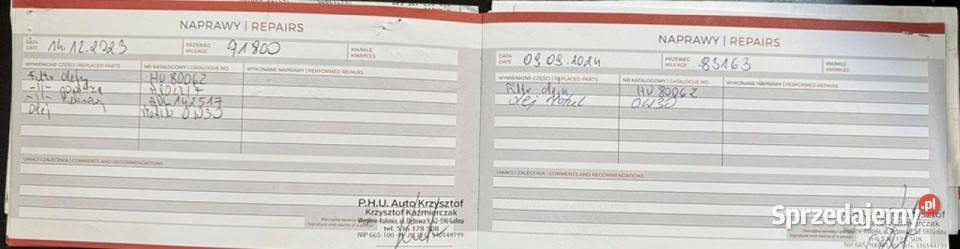 NAPRAWY | REPAIRS
DATA DATE 14.12.2023 PRZEBIEG MILEAGE 71800 KM/MILE KM/MILES
WYMIENIONE CZĘŚCI | REPLACED PARTS NR KATALOGOWY | CATALOGUE NO. WYKONANE NAPRAWY | PERFORMED REPAIRS
Filtr oleju HU 8006Z
-//-
-//- ADG 142517
Olej Motul 0W30
UWAGI I ZALECENIA | COMMENTS AND RECOMMENDATIONS
P.H.U. Auto Krzysztof
Krzysztof Kaźmierczak
tel. 516 178 508
NAPRAWY | REPAIRS
DATA DATE 09.09.2024 PRZEBIEG MILEAGE 83163 KM/MILE KM/MILES
WYMIENIONE CZĘŚCI | REPLACED PARTS NR KATALOGOWY | CATALOGUE NO. WYKONANE NAPRAWY | PERFORMED REPAIRS
Filtr oleju HU 8006Z
Olej Motul 0W30
UWAGI I ZALECENIA | COMMENTS AND RECOMMENDATIONS
Sprzedajemy.pl